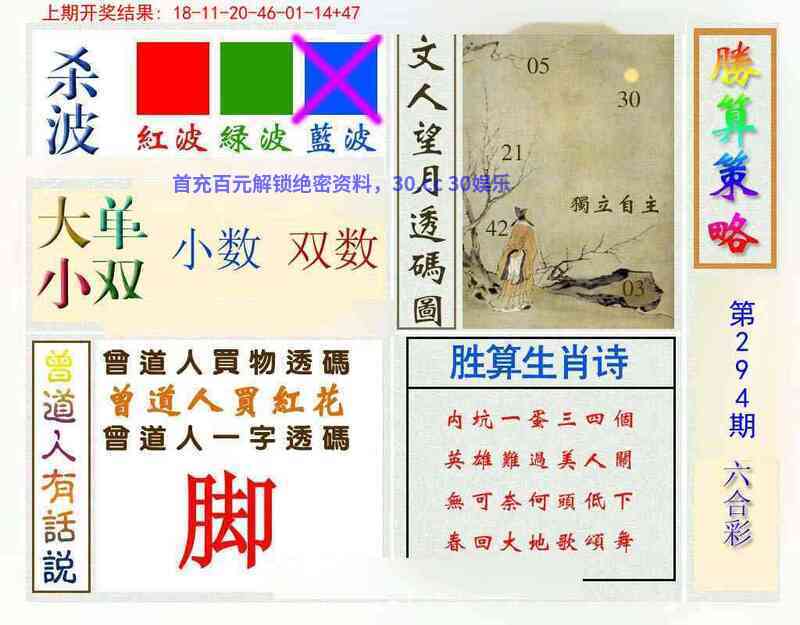 上期开奖结果：18-11-20-46-01-14+47
杀波
紅波 緑波 藍波
首充百元解锁绝密资料，30.cc 30娱乐
大单
小双
小数 双数
文人望月透碼圖
05
30
21
獨立自主
42
03
勝算策略
第294期
六合彩
曾道人有話説
曾道人買物透碼
曾道人買紅花
曾道人一字透碼
脚
胜算生肖诗
内坑一蛋三四個
英雄難過美人關
無可奈何頭低下
春回大地歌頌舞